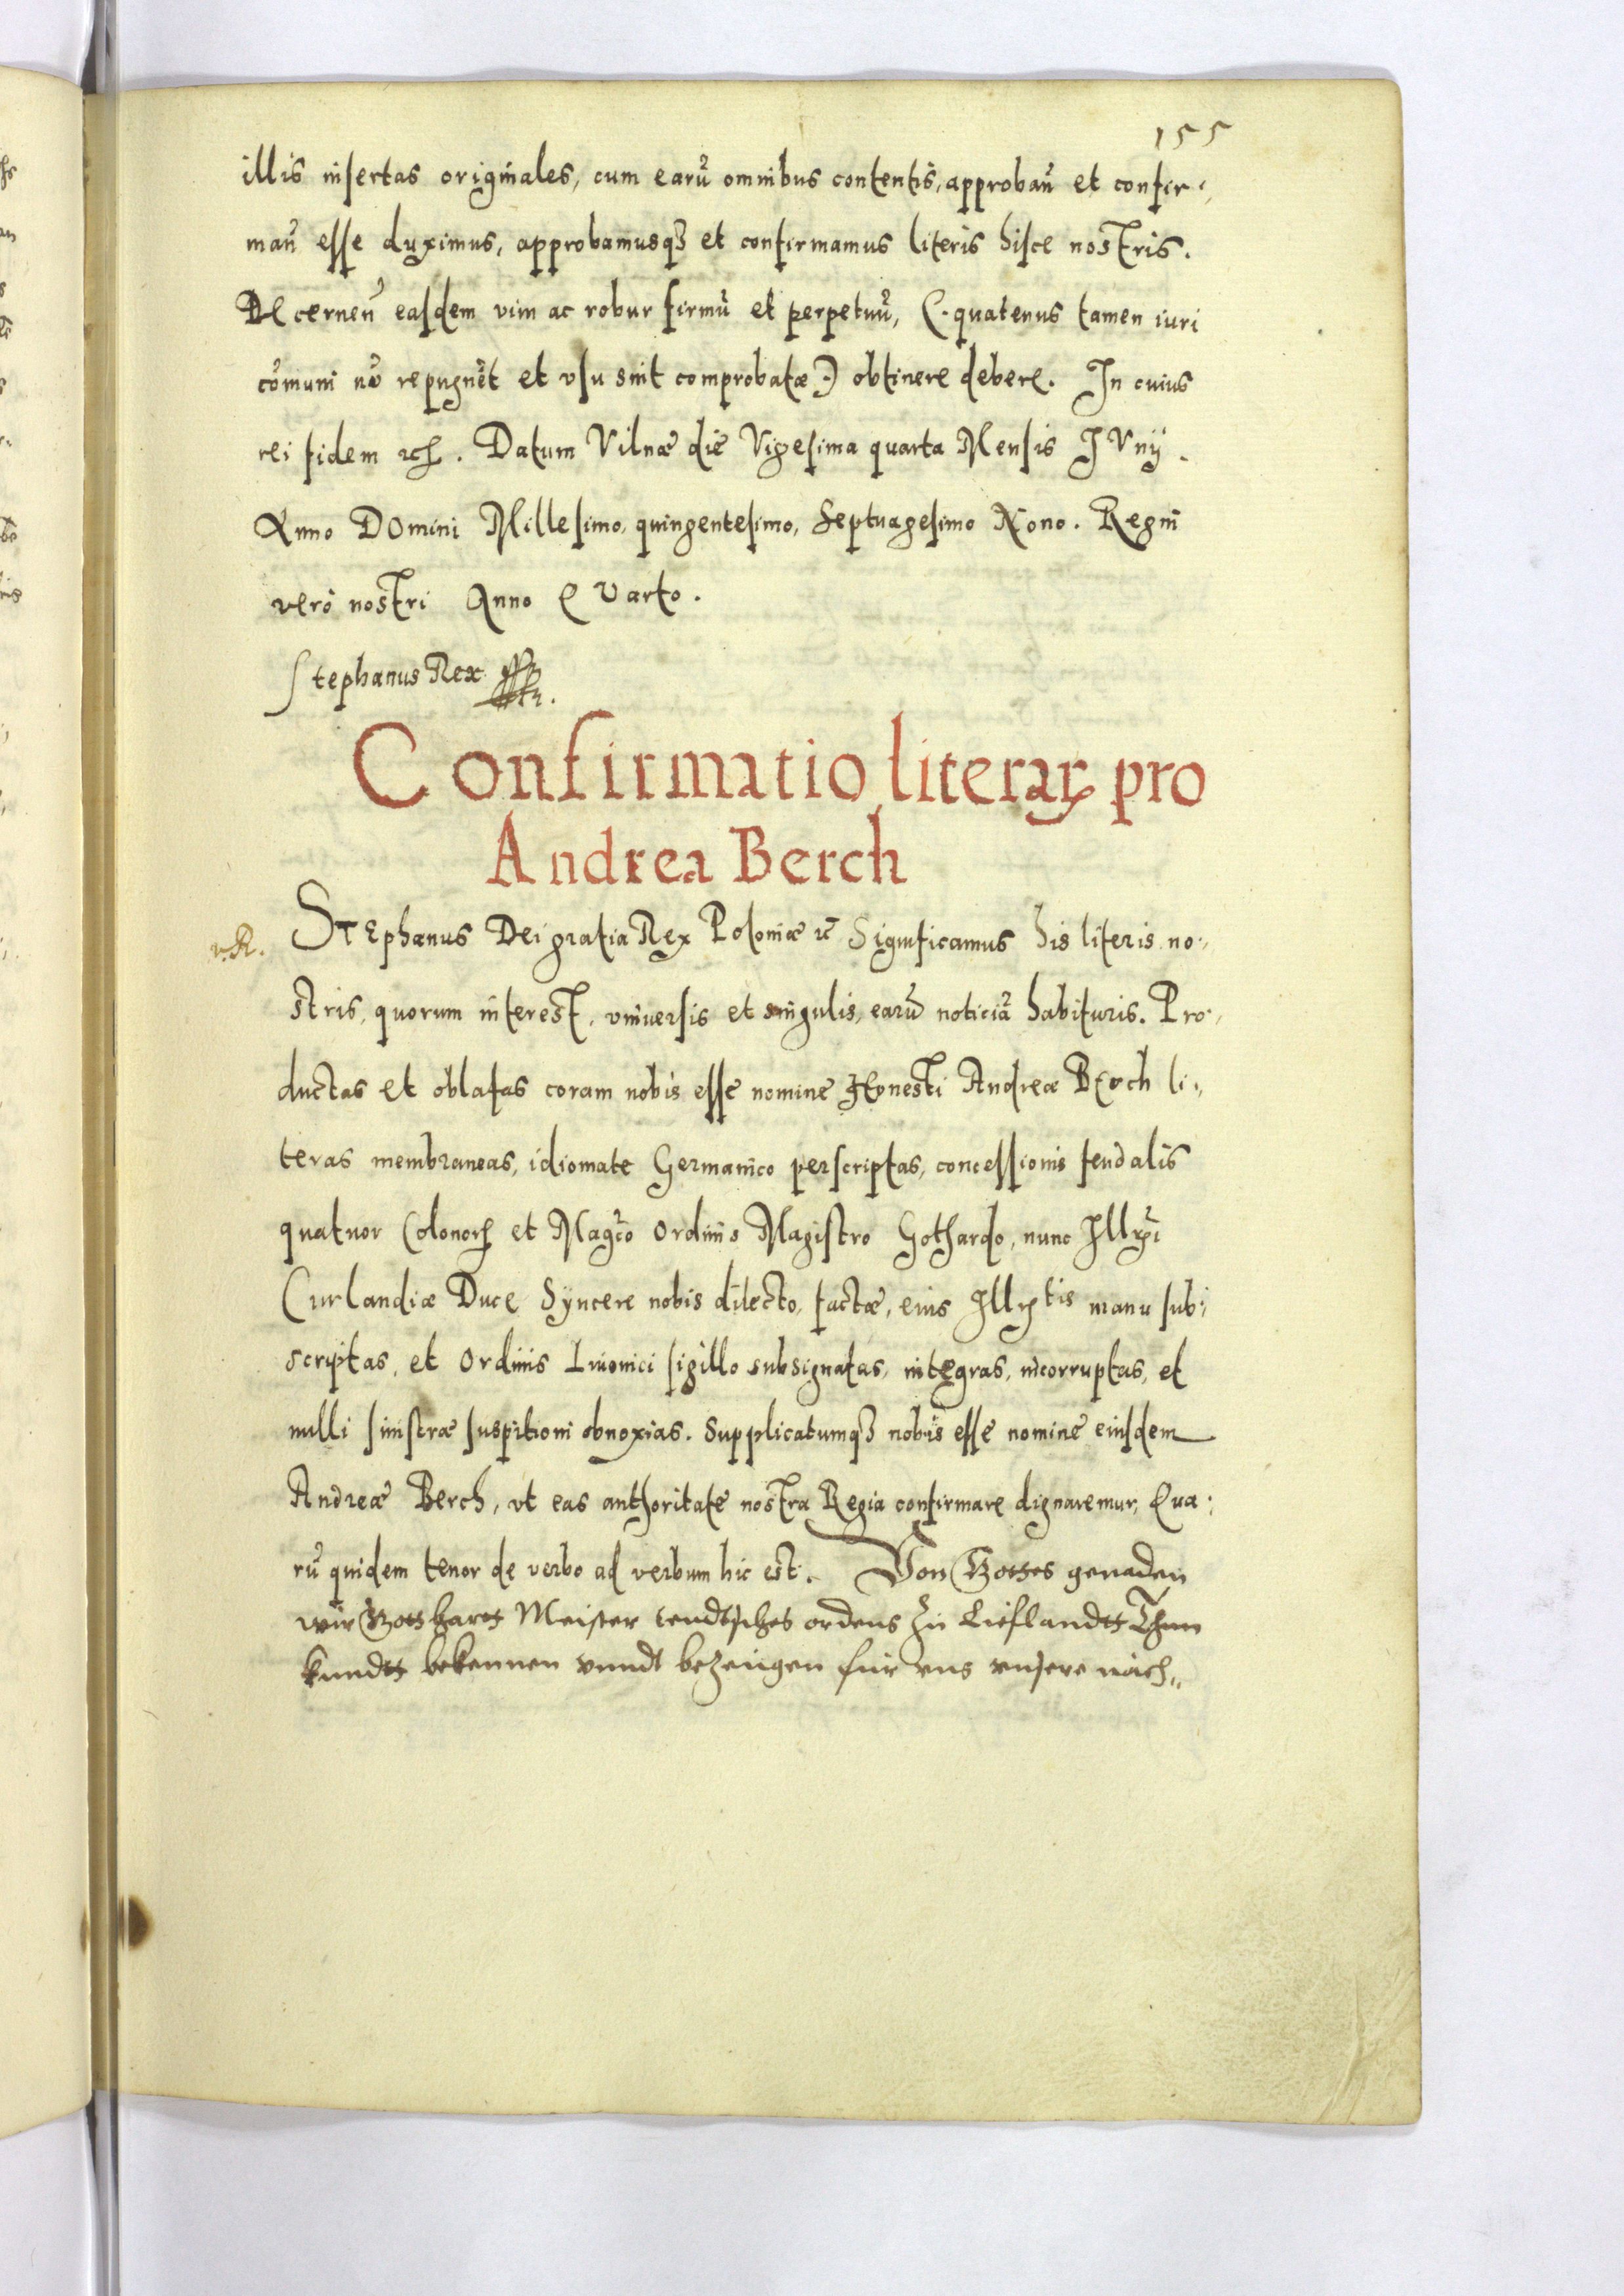 155
illis insertas originales, cum earũ omnibus contentis, approbañ et confir-
mañ esse duximus, approbamusqꝫ et confirmamus literis hisce nostris.
DEcerneñ easdem vim ac robur firmũ et perpetuũ, (quatenus tamen iuri
cõmuni nõ repugnẽt et vsu sint comprobatæ) obtinere debere. In cuius
rei fidem ꝛc. Datum Vilnæ die Vigesima quarta Mensis IVnÿ.
Anno DOmini Millesimo, quingentesimo, Septuagesimo Nono. Regni
verò nostri Anno QVarto.
Stephanus Rex
Confirmatio literaꝝ pro
Andrea Berch
v. R.
STEphanus Dei gratia Rex Poloniæ ꝛc Significamus his literis no-
stris, quorum interest, vniuersis et singulis, earũ noticiã habituris. Pro-
ductas et oblatas coram nobis esse nomine HOnesti Andreæ BErch li-
teras membraneas, idiomate Germanico perscriptas, concessionis feudalis
quatuor Colonoꝝ et Magco Ordinis Magistro Gothardo, nunc Illmi
Curlandiæ Duce Syncere nobis dilecto, factæ, eius Illtis manu sub-
scriptas, et Ordinis Liuonici sigillo subsignatas, integras, incorruptas, et
nulli sinistræ suspitioni obnoxias. Supplicatumqꝫ nobis esse nomine eiusdem
Andreæ Berch, vt eas authoritate nostra Regia confirmare dignaremur, Qua-
rũ quidem tenor de verbo ad verbum hic est. Von Gottes genaden
wir Gotthartt Meister teudtsches ordens Zu Liefflandtt Thun
kundtt bekennen vnndt bezeugen für vns vnsere nach-